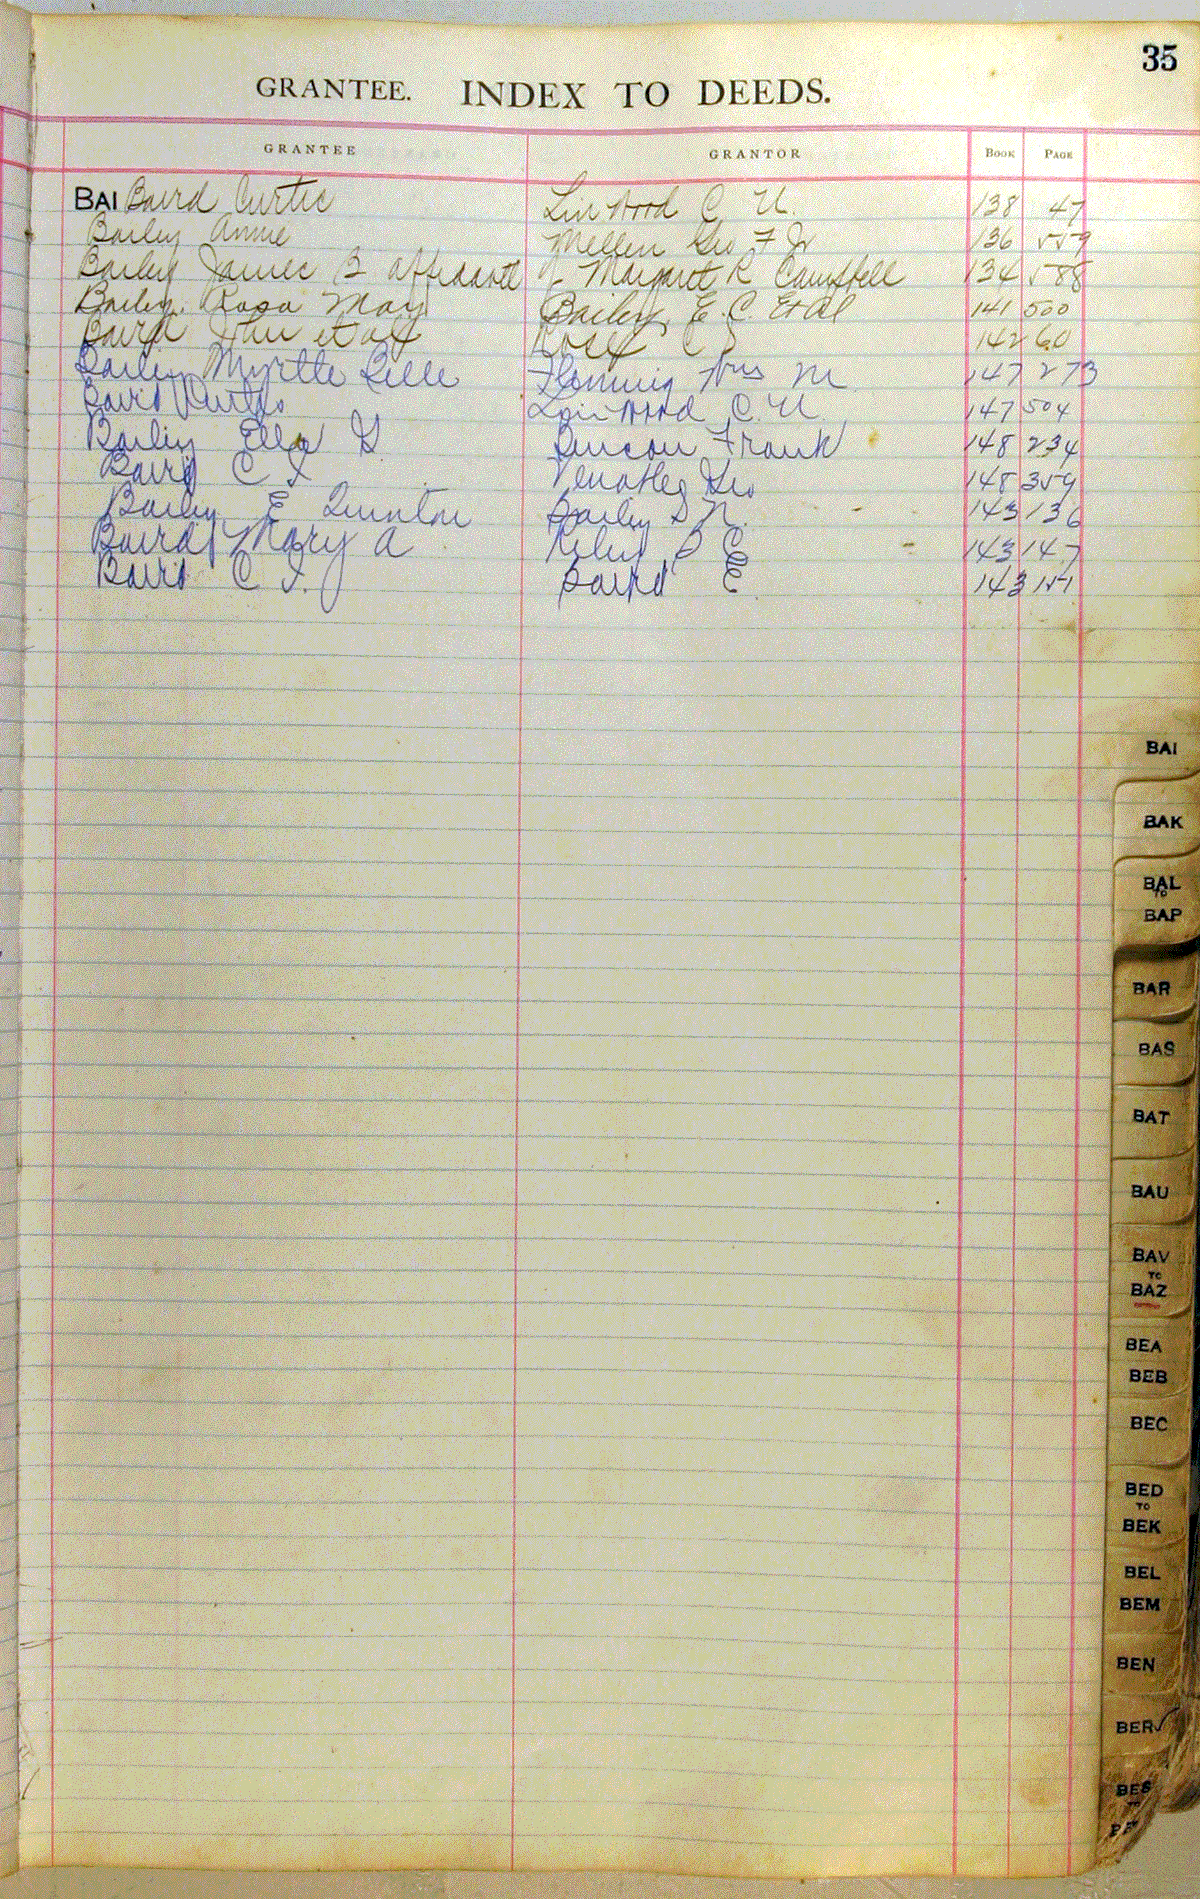 35
GRANTEE. INDEX TO DEEDS.
GRANTEE GRANTOR BOOK PAGE
BAI Baird Curtis C. U. 138 47
Bailey Annie Mellen Geo F Jr 136 559
Bailey James B affidavit Margaret R Campbell 134 588
Bailey Rosa May Bailey E. C Et Al 141 500
Baird et al C S 142 60
Bailey Myrtle Belle Fleming Wm M 147 273
Baird Curtis C. U. 147 504
Bailey Ella G Duncan Frank 148 234
Baird C I Venable Geo 148 359
Bailey E Quinton Bailey S N. 143 136
Baird Mary A Riley B C 143 147
Baird C I. Baird E 143 151
BAI
BAK
BAL
TO
BAP
BAR
BAS
BAT
BAU
BAV
TO
BAZ
BEA
BEB
BEC
BED
TO
BEK
BEL
BEM
BEN
BER
BES